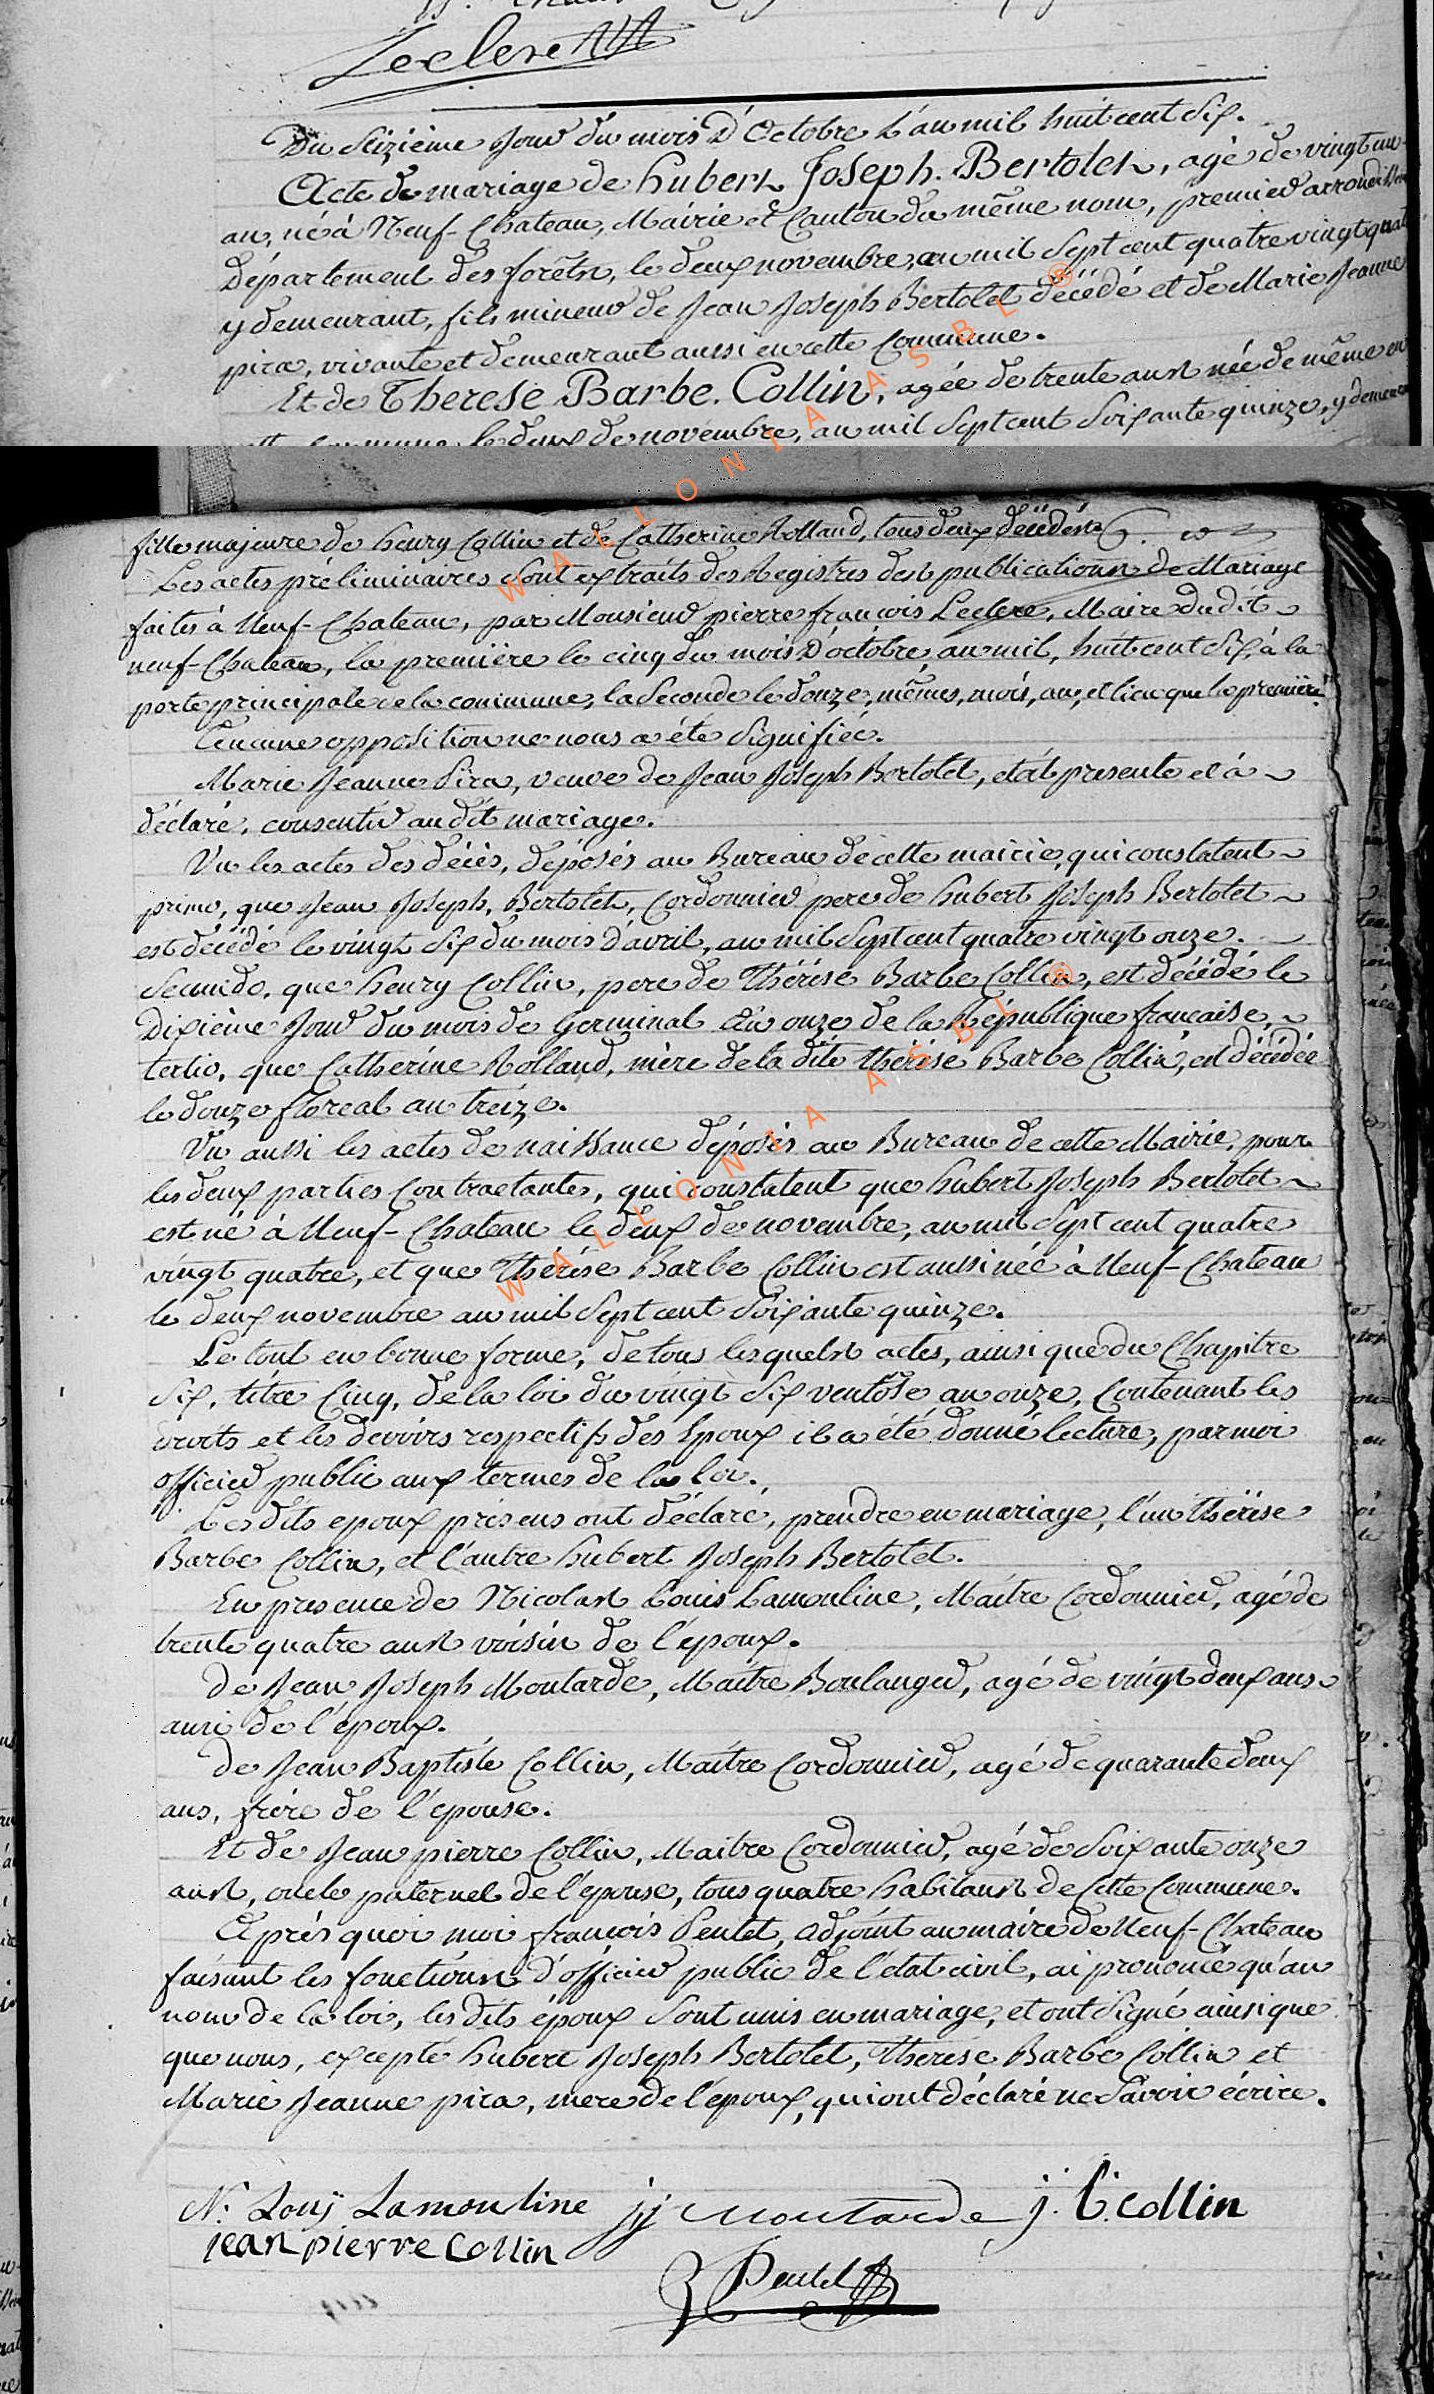 Leclere
Du Seizième Jour du mois D'Octobre L'an mil huit cent Six.
Acte de mariage de hubert Joseph Bertolet, agé de vingt un
an, né à Neuf-Chateau, Mairie et Canton du même nom, premier arrondissem
Département des forêts, le deux novembre, an mil Sept cent quatre vingt quat
y demeurant, fils mineur de Jean Joseph Bertolet décédé et de Marie Jeanne
pira, vivante et demeurant aussi en cette Commune.
Et de Therese Barbe Collin, agée de trente ans née de même en
commune le deux de novembre, an mil Sept cent Soixante quinze, y demeuran
fille majeure de henry Collin et de Catherine Rolland, tous deux décédés
Les actes préliminaires Sont extraits des Registres des publications de Mariage
faites à Neuf-Chateau, par Monsieur pierre françois Leclere, Maire Dudit
neuf-Chateau, la première le cinq du mois D'octobre an mil, huit cent Six, à la
porte principale de la commune, la Seconde le douze, mêmes, mois, an, et lieu que la première.
Aucune opposition ne nous a été Signifiée.
Marie Jeanne Pira, veuve de Jean Joseph Bertolet, etait presente et à
déclaré, consentir au dit mariage.
Vu les actes des décès, déposés au Bureau de cette mairie, qui constatent
primo, que Jean Joseph, Bertolet, Cordonnier pere de hubert Joseph Bertolet
est décédé le vingt Six du mois d'avril, an mil Sept cent quatre vingt onze.
Secundo, que henry Collin, pere de Thérèse Barbe Collin, est décédé le
Dixième Jour du mois de Germinal An onze de la République française,
tertio, que Catherine Rolland, mère de la dite thérèse Barbe Collin, est décédée
le douze floreal an treize.
Vu aussi les actes de naissance déposés au Bureau de cette Mairie, pour
les deux parties Contractantes, qui constatent que hubert Joseph Bertolet
est né à Neuf-Chateau le deux de novembre, an mil Sept cent quatre
vingt quatre, et que Thérèse Barbe Collin est aussi née à Neuf-Chateau
le deux novembre an mil Sept cent Soixante quinze.
Le tout en bonne forme, de tous lesquels actes, ainsi que du Chapitre
Six, titre Cinq, de la loi du vingt Six ventôse an onze, Contenant les
droits et les devoirs respectifs des Epoux il a été donné lecture, par moi
officier public aux termes de la loi.
Les dits epoux présens ont déclaré, prendre en mariage, l'un thérèse
Barbe Collin, et l'autre hubert Joseph Bertolet.
En presence de Nicolas Louis Lamouline, Maitre Cordonnier, agé de
trente quatre ans voisin de l'époux.
de Jean Joseph Moutarde, Maitre Boulanger, agé de vingt deux ans
ami de l'époux.
de Jean Baptiste Collin, Maitre Cordonnier, agé de quarante deux
ans, frère de l'épouse.
Et de Jean pierre Collin, Maitre Cordonnier, agé de Soixante onze
ans, oncle paternel de l'épouse, tous quatre habitans de Cette Commune.
Après quoi moi françois Peutet, adjoint au maire de Neuf-Chateau
faisant les fonctions d'officier public de l'état civil, ai prononcé qu'au
nom de la loi, les dits époux Sont unis en mariage, et ont Signé ainsi que
que nous, excepté hubert Joseph Bertolet, Thérèse Barbe Collin et
Marie Jeanne pira, mere de l'époux, qui ont déclaré ne Savoir écrire.
N. Louÿ Lamouline jj Moutarde j. b. collin
jean pierre collin
Peutet
WALLONIA ASBL ®
WALLONIA ASBL ®